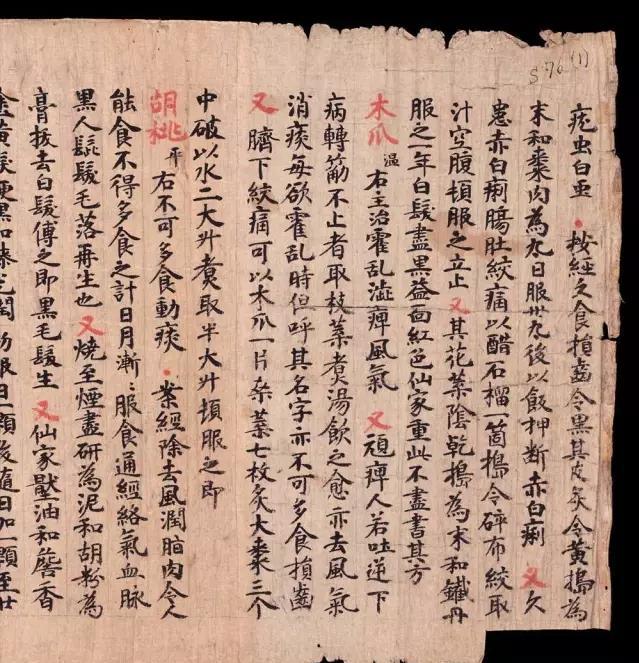 S.76 (1)
疣虫白虫 · 按經之食損齒令黑其皮炙令黃搗為
末和棗肉為丸日服卅丸後以飯押断赤白痢 又久
患赤白痢腸肚絞痛以醋石榴一箇搗令碎布絞取
汁空腹頓服之立止 又其花葉陰乾搗為末和鐵丹
服之一年白髮盡黑益面紅色仙家重此不盡書其方
木瓜 温 右主治霍乱澁痺風氣 又頑痺人若吐逆下
病轉筋不止者取枝葉煮湯飲之愈亦去風氣
消痰每欲霍乱時但呼其名字亦不可多食損齒
又 臍下絞痛可以木瓜一片桒葉七枚炙大棗三个
中破以水二大升煮取半大升頓服之即
胡桃 平 右不可多食動痰 · 案經除去風潤脂肉令人
能食不得多食之計日月漸ミ服食通經絡氣血脉
黑人髭髮毛落再生也 又 燒至煙盡研為泥和胡粉為
膏拔去白髮傅之即黑毛髮生 又 仙家壓油和詹香
塗黃髮便黑如漆光潤 初服日一顆後随日加一顆至廿